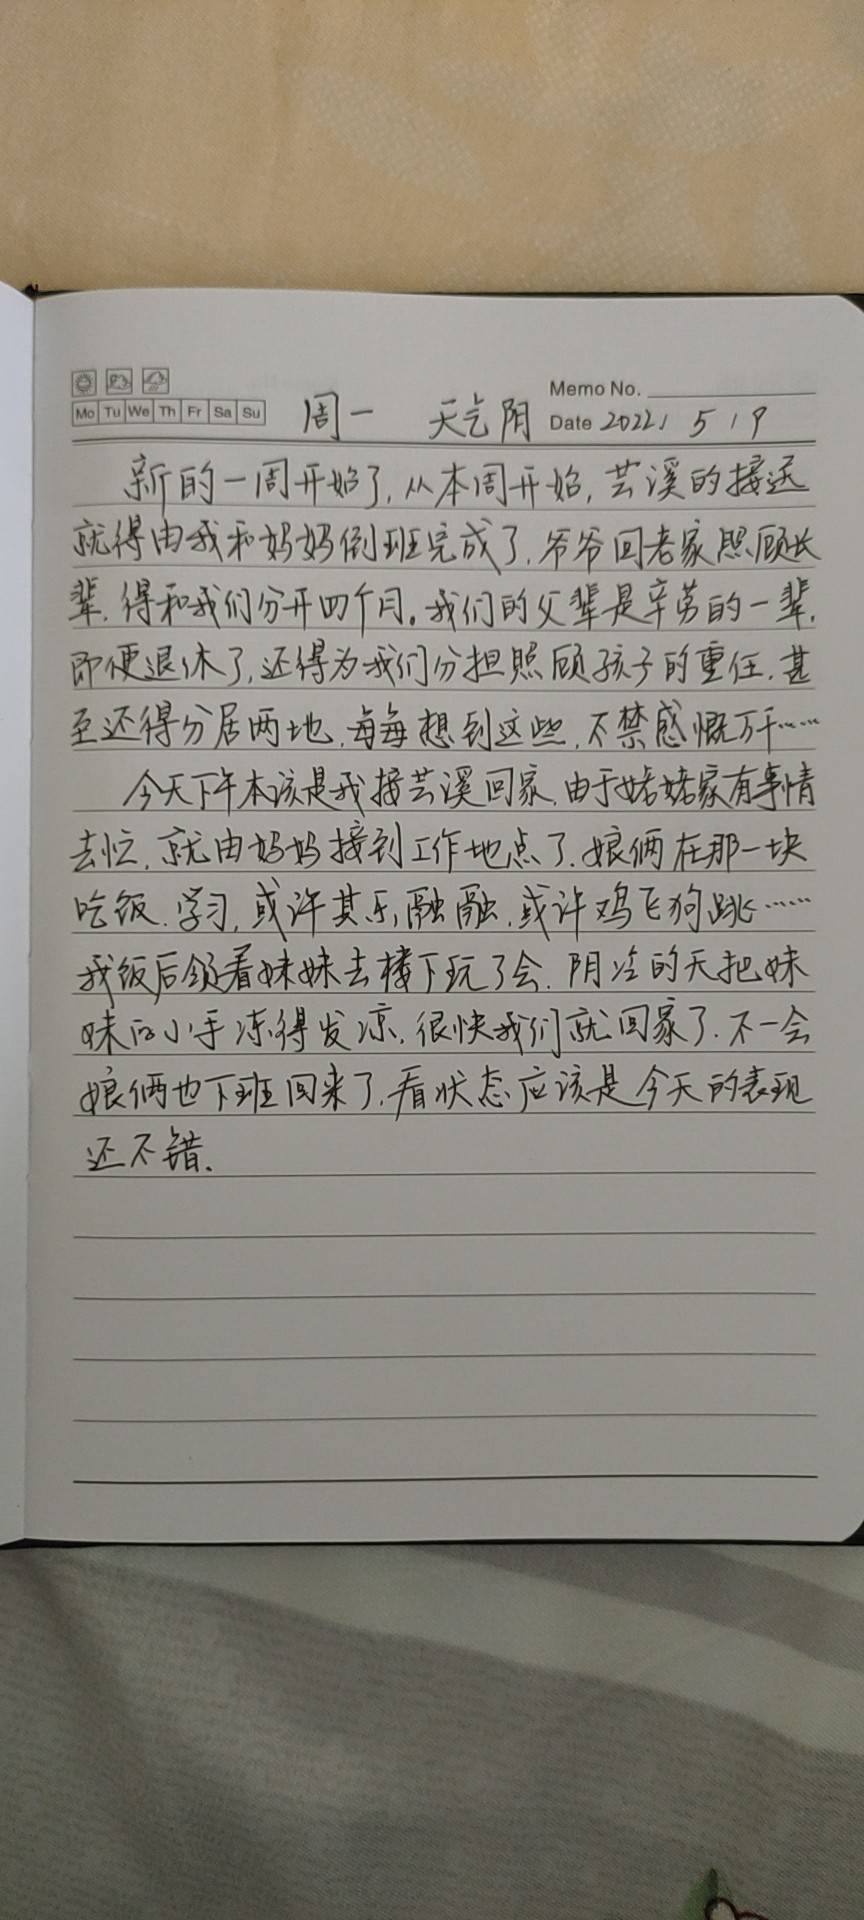 Memo No.
Mo Tu We Th Fr Sa Su 周一 天气阴 Date 2022 / 5 / 9
新的一周开始了,从本周开始,芸溪的接送
就得由我和妈妈倒班完成了,爷爷回老家照顾长
辈,得和我们分开四个月。我们的父辈是辛劳的一辈,
即便退休了,还得为我们分担照顾孩子的重任,甚
至还得分居两地,每每想到这些,不禁感慨万千……
今天下午本该是我接芸溪回家,由于姥姥家有事情
去忙,就由妈妈接到工作地点了,娘俩在那一块
吃饭、学习,或许其乐融融,或许鸡飞狗跳……
我饭后领着妹妹去楼下玩了会,阴冷的天把妹
妹的小手冻得发凉,很快我们就回家了,不一会
娘俩也下班回来了,看状态应该是今天的表现
还不错.